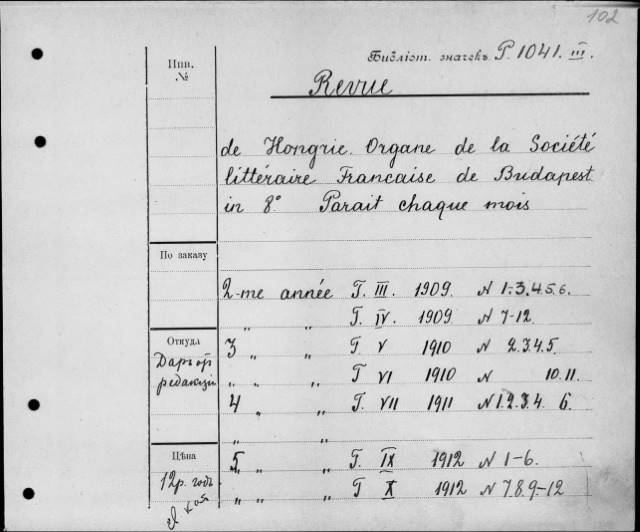 102
Библіот. значекъ P. 1041. III.
Инв.
№
Revue
de Hongrie. Organe de la Société
littéraire Francaise de Budapest.
in 8° Parait chaque mois
По заказу
2-me année T. III. 1909. N 1-3.4.5.6.
„ „ T. IV. 1909 N 7-12.
Откуда
3 „ „ T. V 1910 N 2.3.4.5.
Даръ отъ
редакціи
„ „ „ T VI 1910 N 10.11.
4 „ „ T. VII 1911 N 1.2.3.4. 6.
„ „
Цѣна
5 „ „ T. IX 1912 N 1-6.
12 р. годъ
„ „ „ T X 1912 N 7.8.9-12